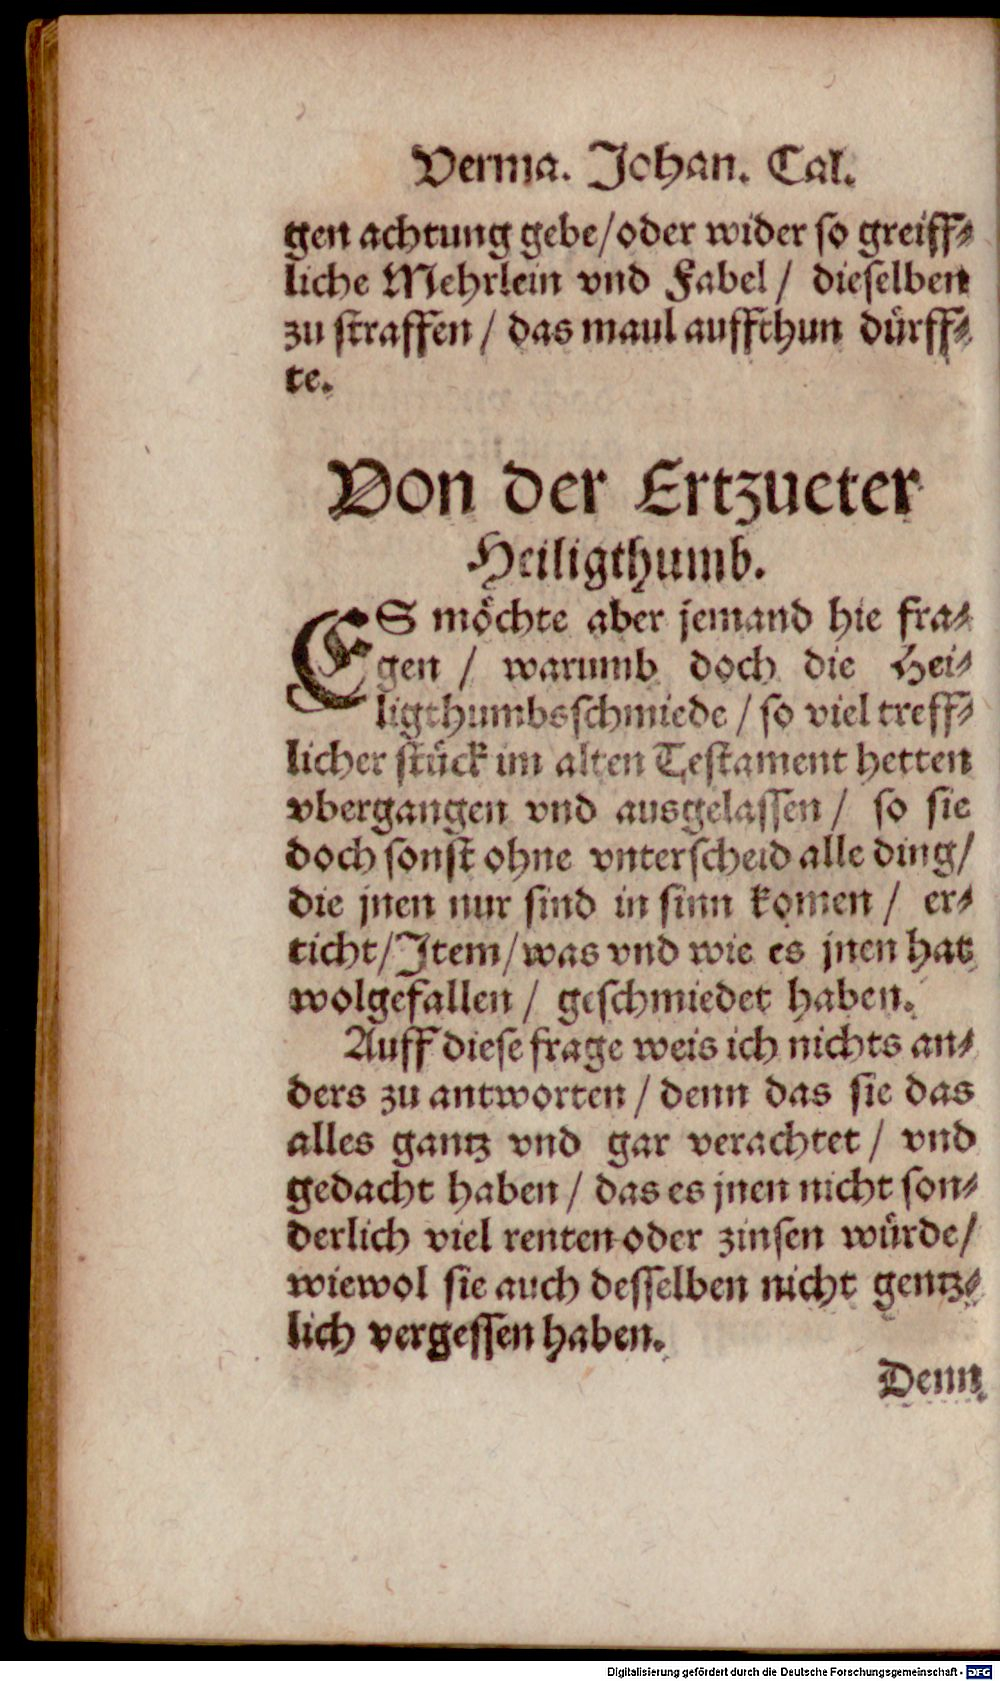 Verma. Johan. Cal.
gen achtung gebe/oder wider so greiff⸗
liche Mehrlein vnd Fabel / dieselben
zu straffen / das maul auffthun dürff⸗
te.
Von der Ertzueter
Heiligthumb.
ES möchte aber jemand hie fra⸗
gen / warumb doch die Hei⸗
ligthumbsschmiede / so viel treff⸗
licher stück im alten Testament hetten
vbergangen vnd ausgelassen / so sie
doch sonst ohne vnterscheid alle ding/
die jnen nur sind in sinn komen / er⸗
ticht/Item/was vnd wie es jnen hat
wolgefallen / geschmiedet haben.
Auff diese frage weis ich nichts an⸗
ders zu antworten / denn das sie das
alles gantz vnd gar verachtet / vnd
gedacht haben / das es jnen nicht son⸗
derlich viel renten oder zinsen würde/
wiewol sie auch desselben nicht gentz⸗
lich vergessen haben.
Denn
Digitalisierung gefördert durch die Deutsche Forschungsgemeinschaft - DFG